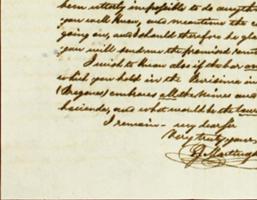 been utterly impossible to do anything
you well know, and meantime the c
going on, and should therefore be gla
you will send me the promised
I wish to know also if the bar
which you hold in the
embraces all the mines and
haciendas, and what would be the
I remain — very dear Sir
Very truly yours